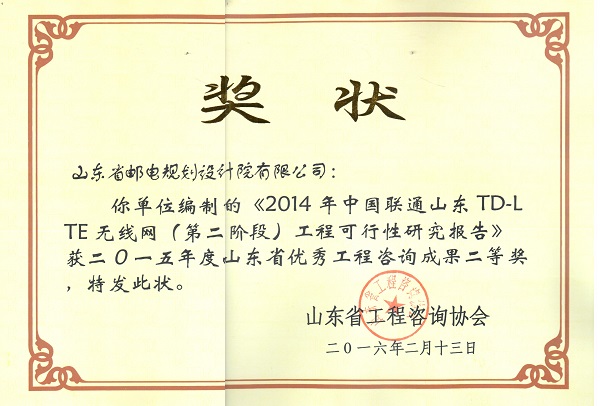 奖 状
山东省邮电规划设计院有限公司：
你单位编制的《2014年中国联通山东TD-L
TE无线网（第二阶段）工程可行性研究报告》
获二〇一五年度山东省优秀工程咨询成果二等奖
，特发此状。
山东省工程咨询协会
二〇一六年二月十三日